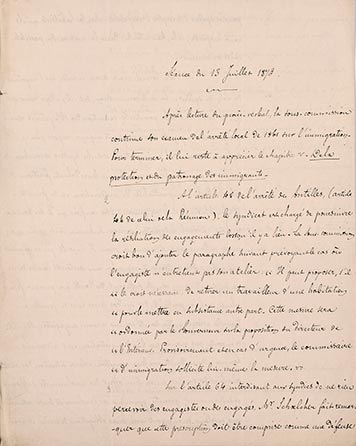 Séance du 13 Juillet 1878
Après lecture du procès-verbal, la sous-commission
continue son examen de l'arrêté local de 1861 sur l'immigration.
Pour terminer, il lui reste à apprécier le chapitre V. De la
protection et du patronage des immigrants.
A l'article 48 de l'arrêté des Antilles, (article
44 de celui de la Réunion), le syndicat est chargé de poursuivre
la résiliation des engagements lorsqu'il y a lieu. La sous-commission
croit bon d'ajouter le paragraphe suivant prévoyant le cas où
l'engagiste n'entretient pas son atelier. « Il peut proposer, s'il
« le croit nécessaire de retirer un travailleur d'une habitation
« pour le mettre en subsistance autre part. Cette mesure sera
« ordonnée par le Gouverneur sur la proposition du Directeur de
« l'Intérieur. Provisoirement et en cas d'urgence, le commissaire
« d'immigration sollicite lui-même la mesure. »
Sur l'article 64 interdisant aux syndics de ne rien
percevoir des engagistes ou des engagés, Mr Schœlcher fait remar-
quer que cette prescription doit être comprise comme une défense